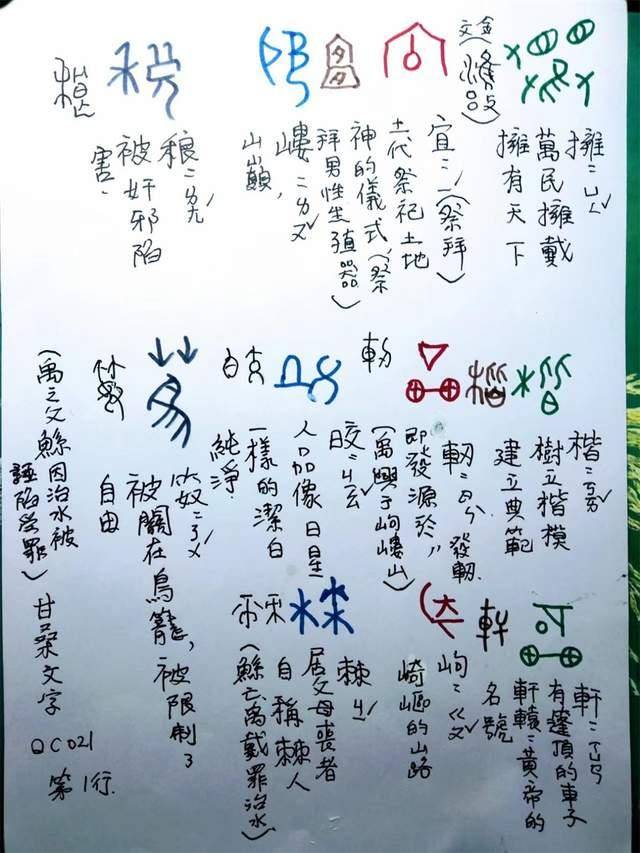 擁=ㄩㄥˇ
萬民擁戴
擁有天下
金文
宜=ㄧˊ(祭拜)
古代祭祀土地
神的儀式(祭
拜男性生殖器)
嶁=ㄌㄡˇ
山巔,
稂=ㄌㄤˊ
被奸邪陷
害.
楷=ㄎㄞˇ
樹立楷模
建立典範
軔=ㄖㄣˋ發軔
即發源於,
(禹興于岣嶁山)
人品像日星
一樣的潔白
純淨.
笯=ㄋㄨˊ
被關在鳥籠,被限制了
自由
(禹之父鯀因治水被
誣陷受罪)甘桑文字
QC021
第1行.
軒=ㄒㄩㄢ
有蓬頂的車子
軒轅=黃帝的
名號
岣=ㄍㄡˇ
崎嶇的山路
棘=ㄐㄧˊ
居父母喪者
自稱棘人
(鯀亡禹戴罪治水)